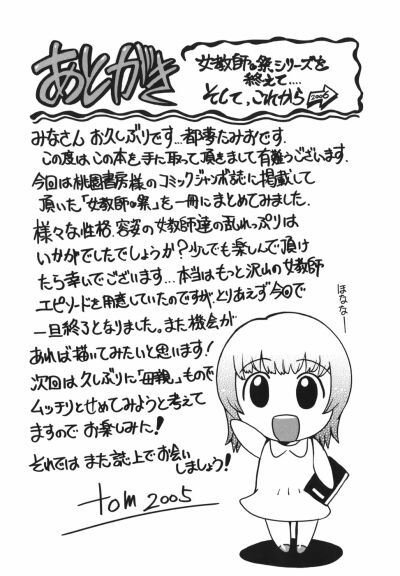 あとがき
女教師の祭シリーズを
終えて....
そして、これから
2006
みなさん お久しぶりです…都考たみおです.
この度は この本を 手に取って頂きまして有難うございます.
今回は桃園書房様のコミックジャンボ誌に掲載して
頂いた「女教師の祭」を一冊にまとめてみました.
様々な性格.容姿の女教師達の乱れっぷりは
いかがでしたでしょうか?少しでも楽しんで頂け
たら幸いでございます…本当はもっと沢山の女教師
エピソードを用意していたのですが、とりあえず今回で
一旦終了となりました。また機会が
あれば描いてみたいと思います!
次回は久しぶりに「母親」もので
ムッチリとせめてみようと考えて
ますので お楽しみに!
それでは また誌上でお会い
しましょう!
tom 2005
ほななー